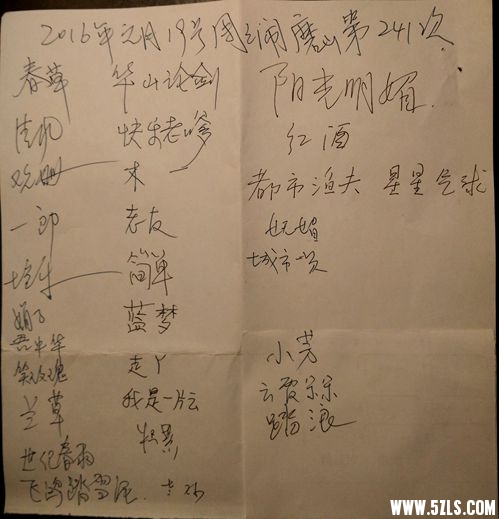 2016年元月19号周二闹磨山第241次
春草 华山论剑 阳光明媚
清风 快乐老爹 红酒
木一 都市渔夫 星星气球
一郎 老友 妩媚
简单 城市
娟子 蓝梦
吾中华 小芳
笑玫瑰 走丫 云霞
兰草 我是一片云 踏浪
世纪春雨
飞鸿踏雪泥
WWW.5ZLS.COM